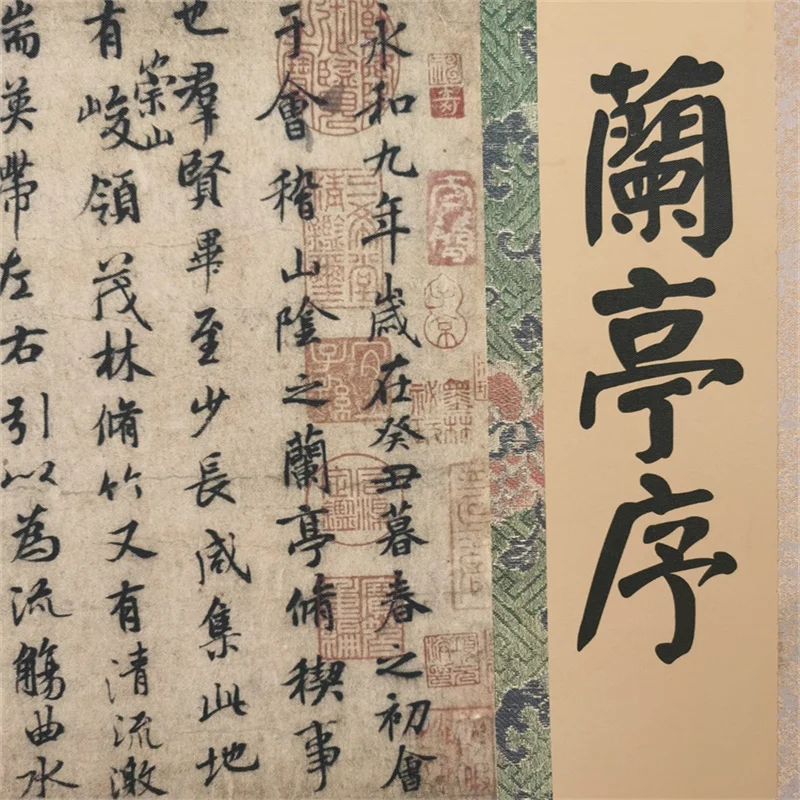 蘭亭序
永和九年歲在癸丑暮春之初會
于會稽山陰之蘭亭脩稧事
也羣賢畢至少長咸集此地
有崇山峻領茂林脩竹又有清流激
湍暎帶左右引以為流觴曲水